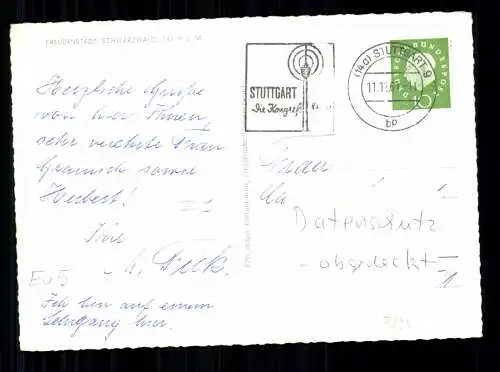 FREUDENSTADT, SCHWARZWALD, 740 m ü. M.
Herzliche Grüße
von hier Ihnen,
sehr verehrte Frau
sowie
Herbert!
Ihre
Ich bin auf einem
Lehrgang hier.
Eu 5
STUTTGART
Die Kongreß
(14a) STUTTGART 9
11.11
bp
BUNDESPOST
10
Frau
Datenschutz
-abgedeckt-